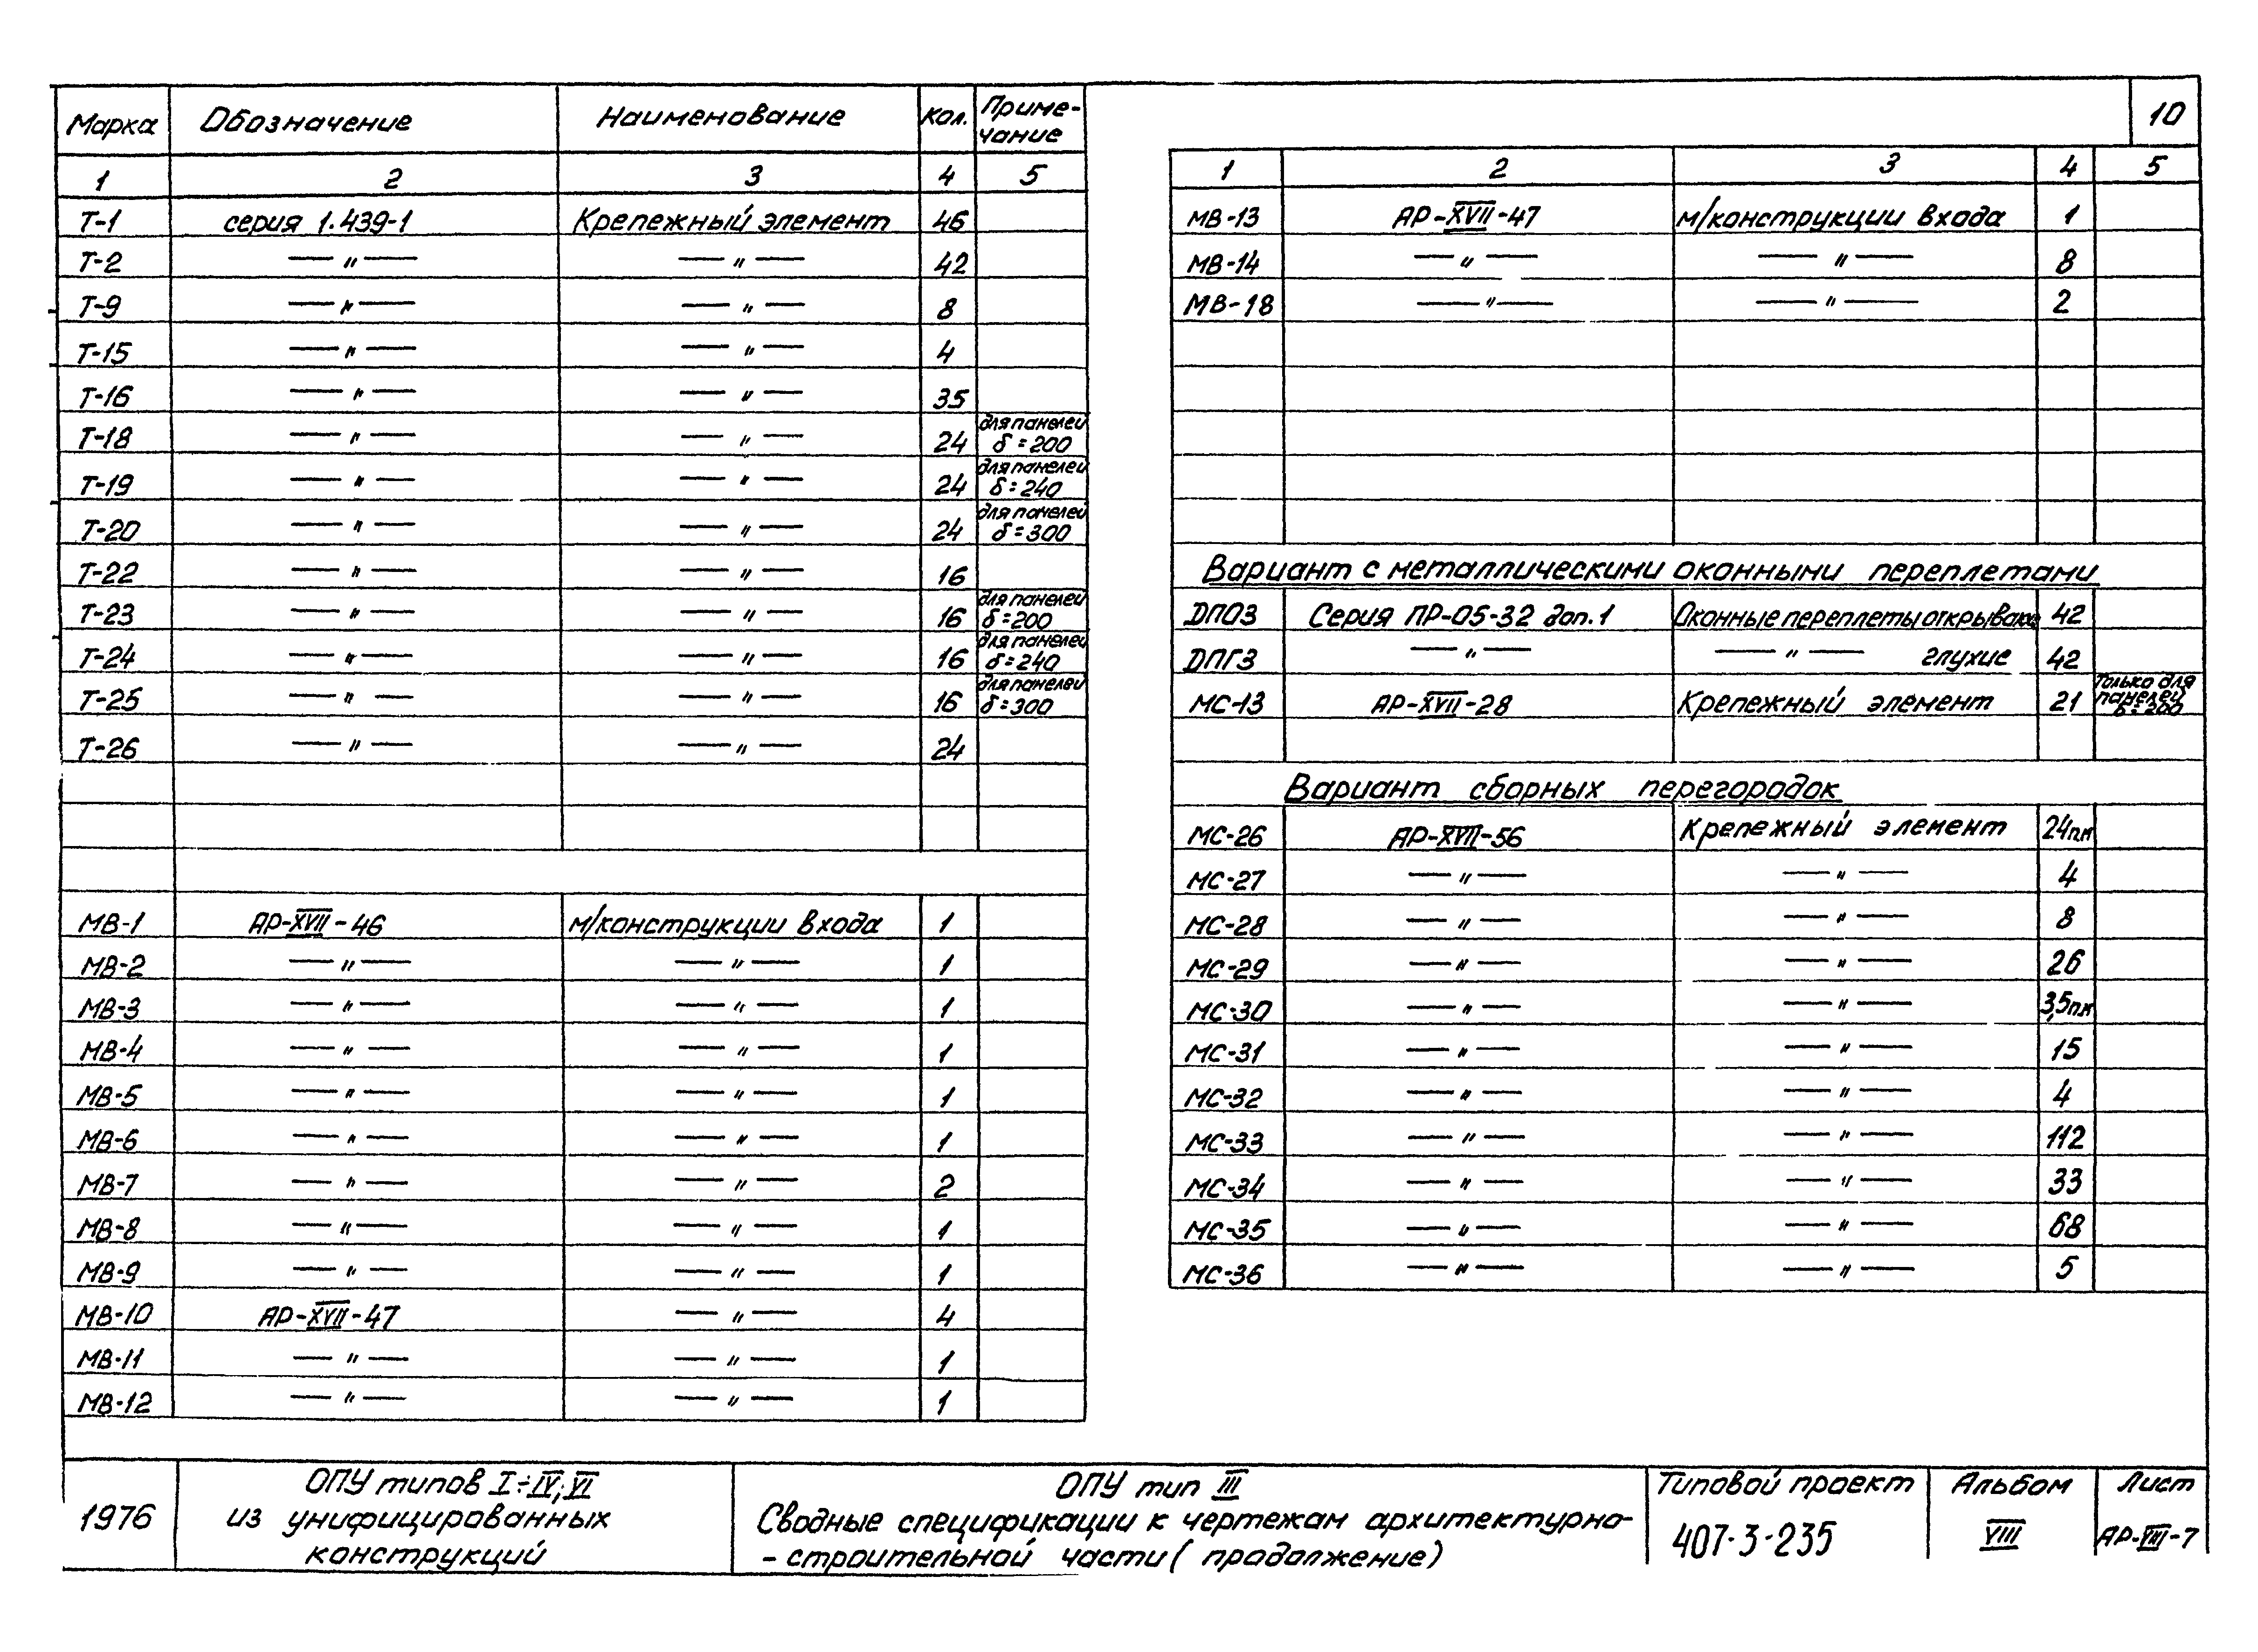 Марка Обозначение Наименование Кол. Приме-
чание
1 2 3 4 5
Т-1 серия 1.439-1 Крепежный элемент 46
Т-2 —〃— —〃— 42
Т-9 —〃— —〃— 8
Т-15 —〃— —〃— 4
Т-16 —〃— —〃— 35
Т-18 —〃— —〃— 24 для панелей
δ=200
Т-19 —〃— —〃— 24 для панелей
δ=240
Т-20 —〃— —〃— 24 для панелей
δ=300
Т-22 —〃— —〃— 16
Т-23 —〃— —〃— 16 для панелей
δ=200
Т-24 —〃— —〃— 16 для панелей
δ=240
Т-25 —〃— —〃— 16 для панелей
δ=300
Т-26 —〃— —〃— 24
МВ-1 АР-XVII-46 м/конструкции входа 1
МВ-2 —〃— —〃— 1
МВ-3 —〃— —〃— 1
МВ-4 —〃— —〃— 1
МВ-5 —〃— —〃— 1
МВ-6 —〃— —〃— 1
МВ-7 —〃— —〃— 2
МВ-8 —〃— —〃— 1
МВ-9 —〃— —〃— 1
МВ-10 АР-XVII-47 —〃— 4
МВ-11 —〃— —〃— 1
МВ-12 —〃— —〃— 1
10
1 2 3 4 5
МВ-13 АР-XVII-47 м/конструкции входа 1
МВ-14 —〃— —〃— 8
МВ-18 —〃— —〃— 2
Вариант с металлическими оконными переплетами
ДПОЗ Серия ПР-05-32 доп.1 Оконные переплеты 42
ДПГЗ —〃— —〃— глухие 42
МС-13 АР-XVII-28 Крепежный элемент 21 Только для
панелей
δ=200
Вариант сборных перегородок
МС-26 АР-XVII-56 Крепежный элемент 24п.м
МС-27 —〃— —〃— 4
МС-28 —〃— —〃— 8
МС-29 —〃— —〃— 26
МС-30 —〃— —〃— 3,5п.м
МС-31 —〃— —〃— 15
МС-32 —〃— —〃— 4
МС-33 —〃— —〃— 112
МС-34 —〃— —〃— 33
МС-35 —〃— —〃— 68
МС-36 —〃— —〃— 5
1976
ОПУ типов I÷IV; VI
из унифицированных
конструкций
ОПУ тип III
Сводные спецификации к чертежам архитектурно-
-строительной части (продолжение)
Типовой проект
407-3-235
Альбом
VIII
Лист
АР-VIII-7